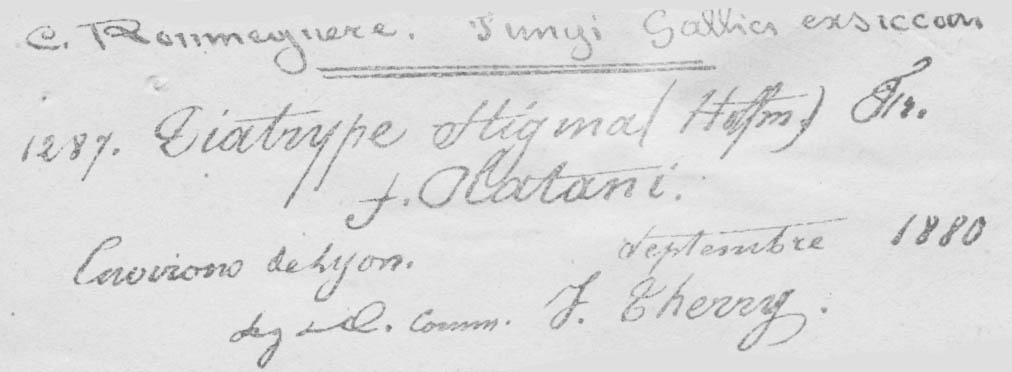 C. Roumeguere. Fungi Gallici exsiccati
1287. Diatrype Stigma (Hoffm.) Fr.
f. Platani.
Environs de Lyon. Septembre 1880
Leg. Comm. J. Therry.